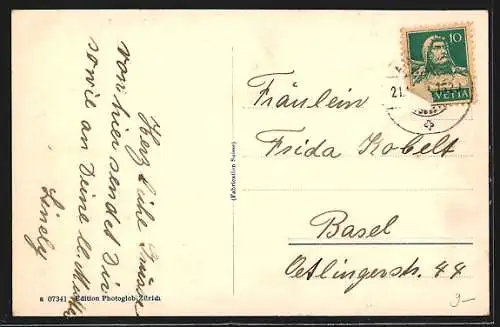 Herzliche Grüsse
von hier sendet Dir
sowie an Deine ll. Mutter
10
HELVETIA
21.
Fräulein
Frida Kobelt
Basel
Oetlingerstr. 44
(Fabrication Suisse)
a 07341 Edition Photoglob, Zürich
9-